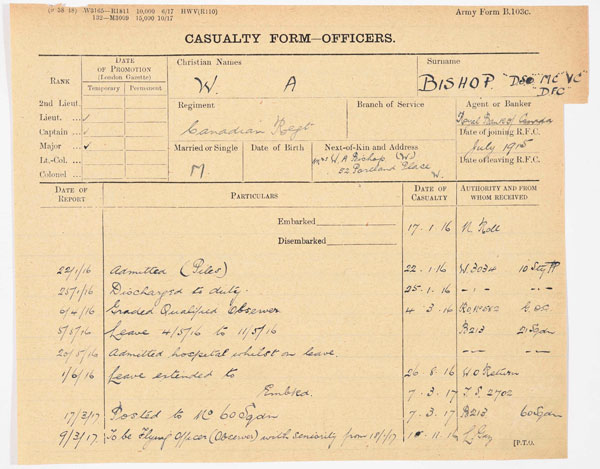 W3165—R1411 10,000 6/17 HWV(R110)
132—M3059 15,000 10/17
Army Form B.103c.
CASUALTY FORM—OFFICERS.
RANK
DATE OF PROMOTION (London Gazette)
Temporary Permanent
2nd Lieut.
Lieut. ... ✓
Captain ... ✓
Major ... ✓
Lt.-Col. ...
Colonel ...
Christian Names
W. A
Surname
BISHOP "DSO" MC "VC"
"DFC"
Regiment
Canadian Regt
Branch of Service
Agent or Banker
Bank of Canada
Date of joining R.F.C.
July 1915
Date of leaving R.F.C.
Married or Single
M.
Date of Birth
Next-of-Kin and Address
Mrs W. A Bishop (W)
52 Portland Place
W.
DATE OF REPORT
PARTICULARS
DATE OF CASUALTY
AUTHORITY AND FROM WHOM RECEIVED
Embarked
17.1.16 N. Roll
Disembarked
22/1/16 Admitted (Piles) 22.1.16 W.3034
25/1/16 Discharged to duty. 25.1.16 -.- -.-
6/4/16 Graded Qualified Observer 4.3.16
5/5/16 Leave 4/5/16 to 11/5/16 B213 21 Sqdn
20/5/16 Admitted hospital whilst on leave. -.- -.-
1/6/16 Leave extended to 26.8.16 W.O Return
Embked. 7.3.17 F.S. 2702
17/3/17 Posted to No 60 Sqdn 7.3.17 B213 60 Sqdn
9/3/17. To be Flying Officer (Observer) with seniority from 11.16 L. Gaz
[P.T.O.